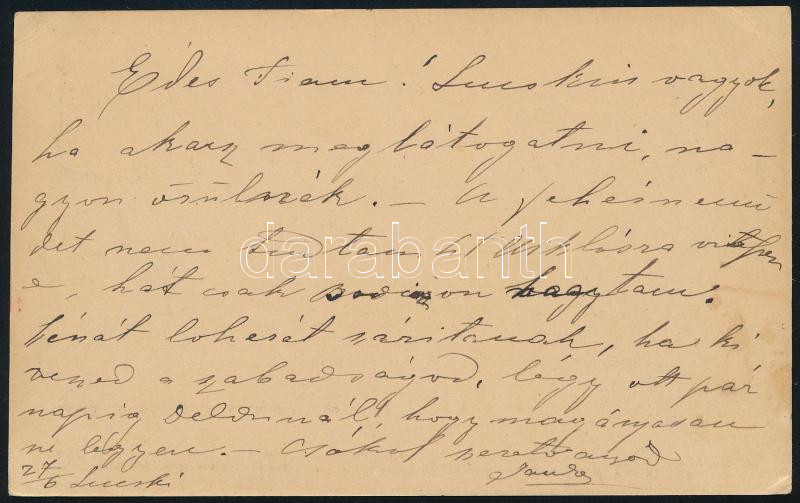 Édes Fiam! Lucskin vagyok,
ha akarsz meglátogatni, na-
gyon örülnék. - A fehérnemü
det nem tudtam Sz Miklósra
e, hát csak hagytam.
Szénát loherét száritanak, ha ki
veszed a szabadságod, légy ott pár
napig Deldunál, hogy magányosan
ne légyen. - Csókol szerető anyod
27/6 Lucski
darabanth